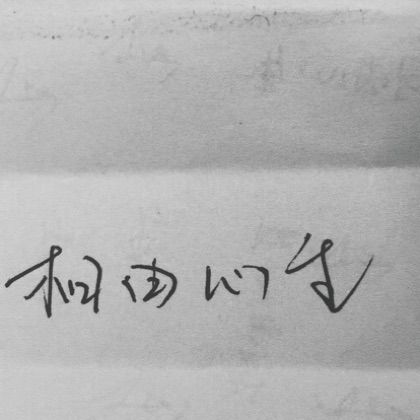 相由心生